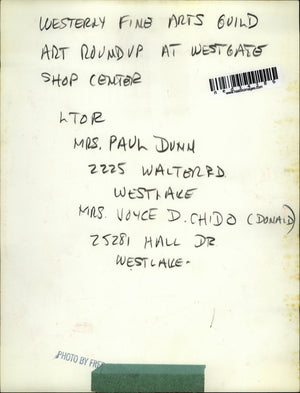 WESTERLY FINE ARTS GUILD
ART ROUNDUP AT WESTGATE
SHOP CENTER
LTOR
MRS. PAUL DUNN
2225 WALTER RD.
WESTLAKE
MRS. VOYCE D. CHIDO (DONALD)
25281 HALL DR
WESTLAKE.
PHOTO BY FRED